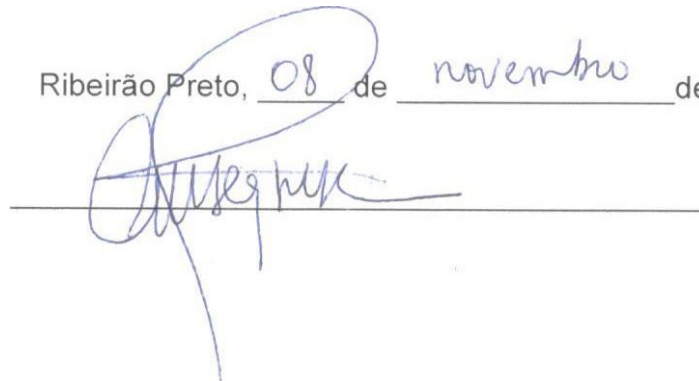 Ribeirão Preto, 08 de novembro de